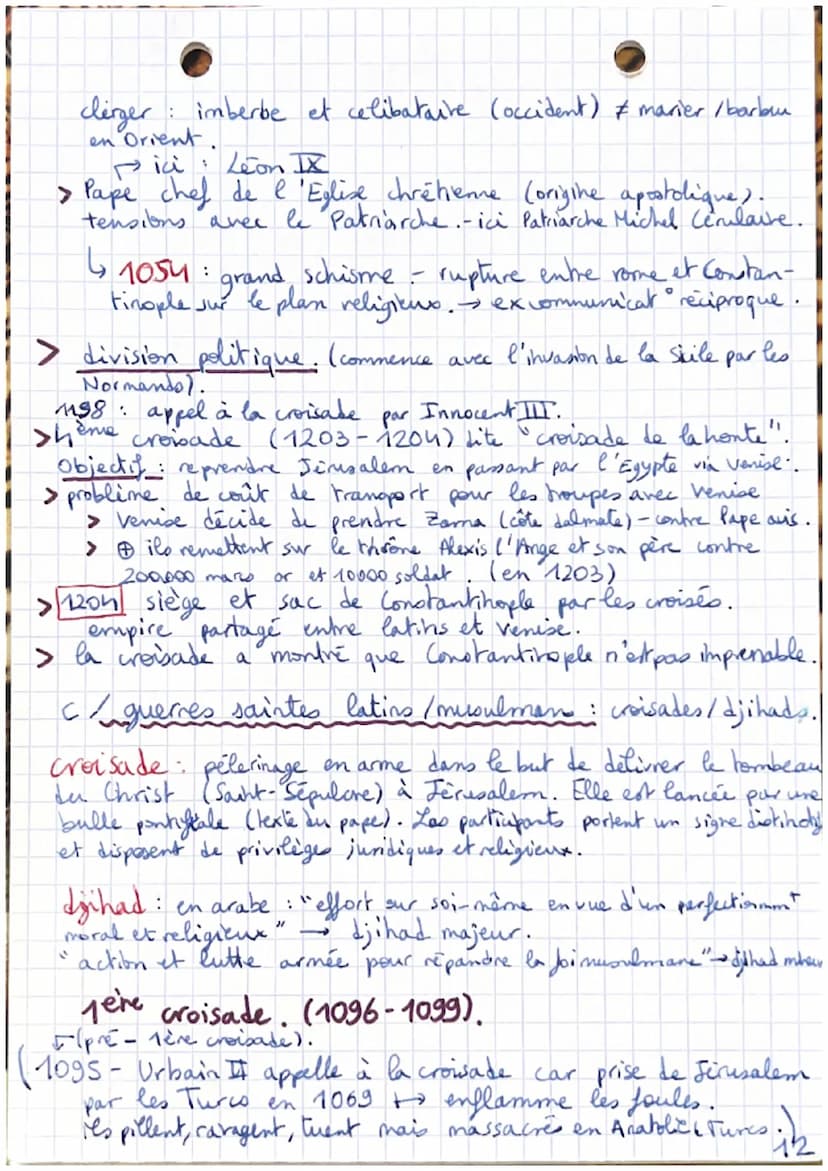 clérger : imberbe et celibataire (occident) ≠ marier / barbu
en Orient.
↱ ici : Léon IX
> Pape chef de l'Eglise chrétienne (origine apostolique).
tensions avec le Patriarche. - ici Patriarche Michel Cérulaire.
↳ 1054 : grand schisme - rupture entre rome et Constan-
tinople sur le plan religieux. → excommunicat° réciproque.
> division politique. (commence avec l'invasion de la Sicile par les
Normands).
1198 : appel à la croisade par Innocent III.
> 4ème croisade (1203-1204) dite "croisade de la honte".
Objectif : reprendre Jérusalem en passant par l'Egypte via Venise.
> problème de coût de transport pour les troupes avec Venise
> Venise décide de prendre Zarna (côte dalmate) - contre Pape avis.
> ⊕ ils remettent sur le thrône Alexis l'Ange et son père contre
200.000 mars or et 10000 soldat. (en 1203)
> 1204 siège et sac de Constantinople par les croisés.
empire partagé entre latins et Venise.
> la croisade a montré que Constantinople n'est pas imprenable.
c / guerres saintes latins / musulman : croisades / djihads.
croisade : pélerinage en arme dans le but de délivrer le tombeau
du Christ (Saint-Sépulcre) à Jérusalem. Elle est lancée par une
bulle pontifiale (texte du pape). Les participants portent un signe distinctif
et disposent de privilèges juridiques et religieux.
djihad : en arabe : "effort sur soi-même en vue d'un perfectionnmt
moral et religieux" → djihad majeur.
"action et lutte armée pour répandre la foi musulmane" → djihad mineur
1ère croisade. (1096-1099).
(pré - 1ère croisade).
(1095 - Urbain II appelle à la croisade car prise de Jérusalem
par les Turcs en 1069 ↦ enflamme les foules.
ils pillent, ravagent, tuent mais massacrés en Anatolie (Turcs.)
12